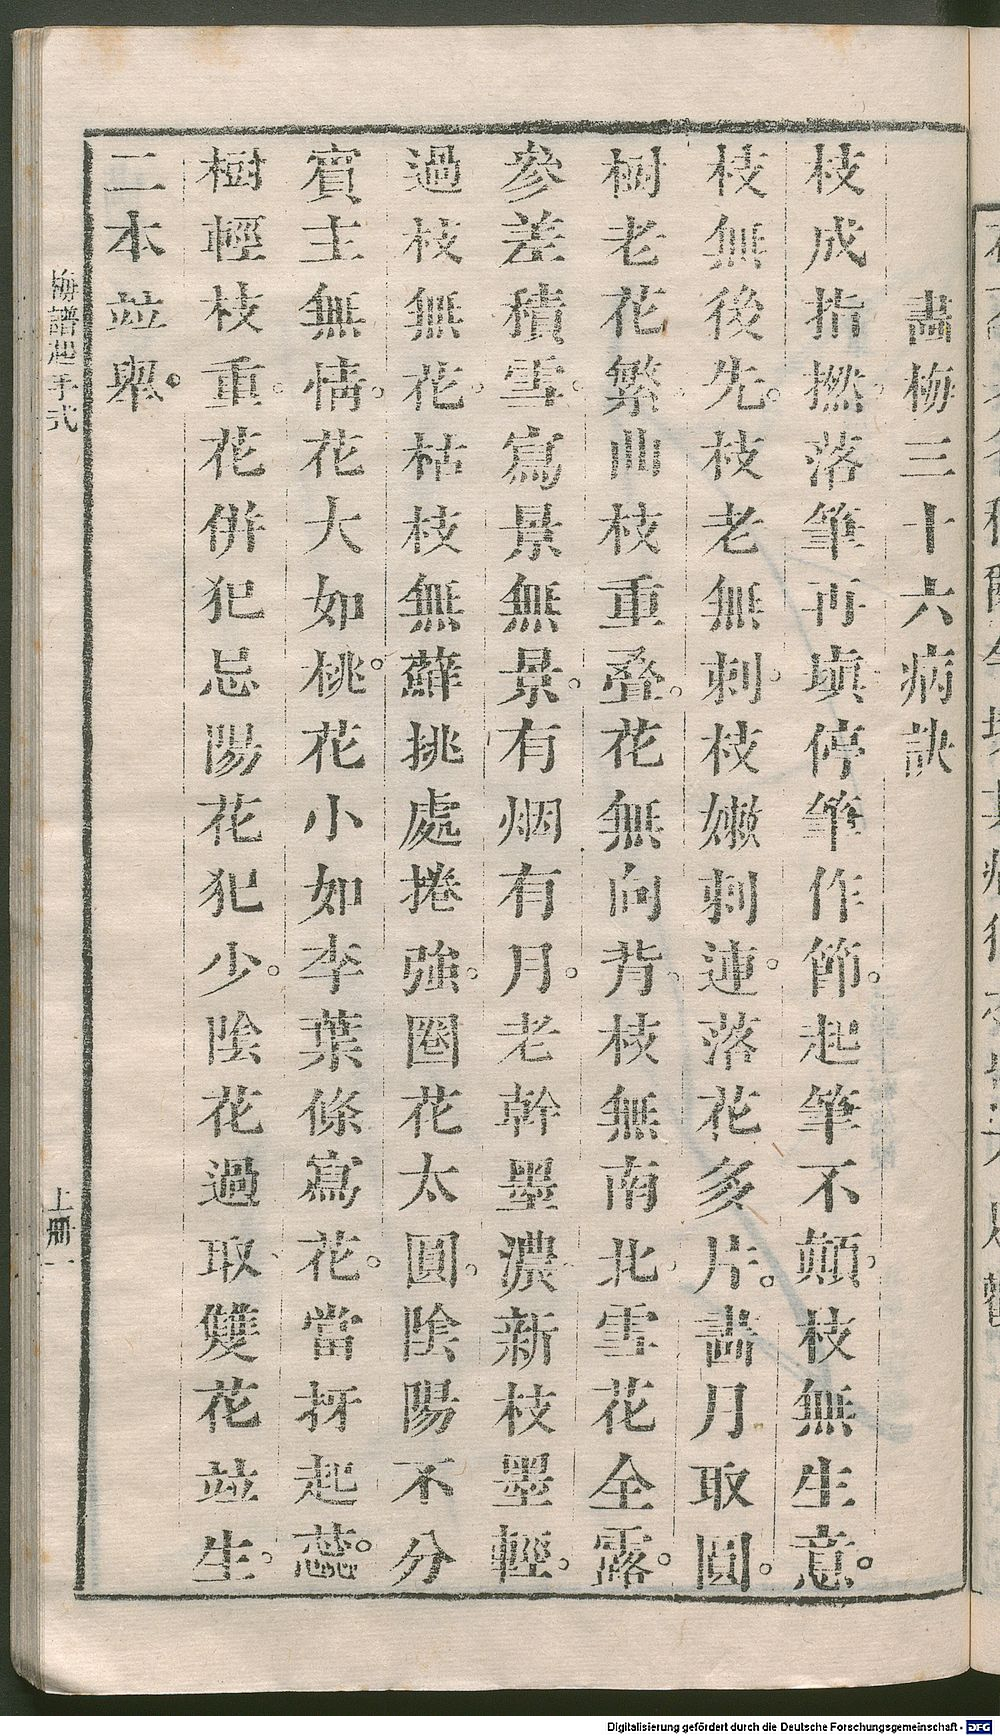 畵梅三十六病訣
枝成指撚。落筆再塡。停筆作節。起筆不顛。枝無生意。
枝無後先。枝老無刺。枝嫩刺連。落花多片。畵月取圓。
樹老花繁。曲枝重叠。花無向背。枝無南北。雪花全露。
參差積雪。寫景無景。有烟有月。老幹墨濃。新枝墨輕。
過枝無花。枯枝無蘚。挑處捲強。圈花太圓。陰陽不分
賓主無情。花大如桃。花小如李。葉條寫花。當枒起蕊。
樹輕枝重。花併犯忌。陽花犯少。陰花過取。雙花並生。
二本並舉。
梅譜起手式
上册
Digitalisierung gefördert durch die Deutsche Forschungsgemeinschaft - DFG